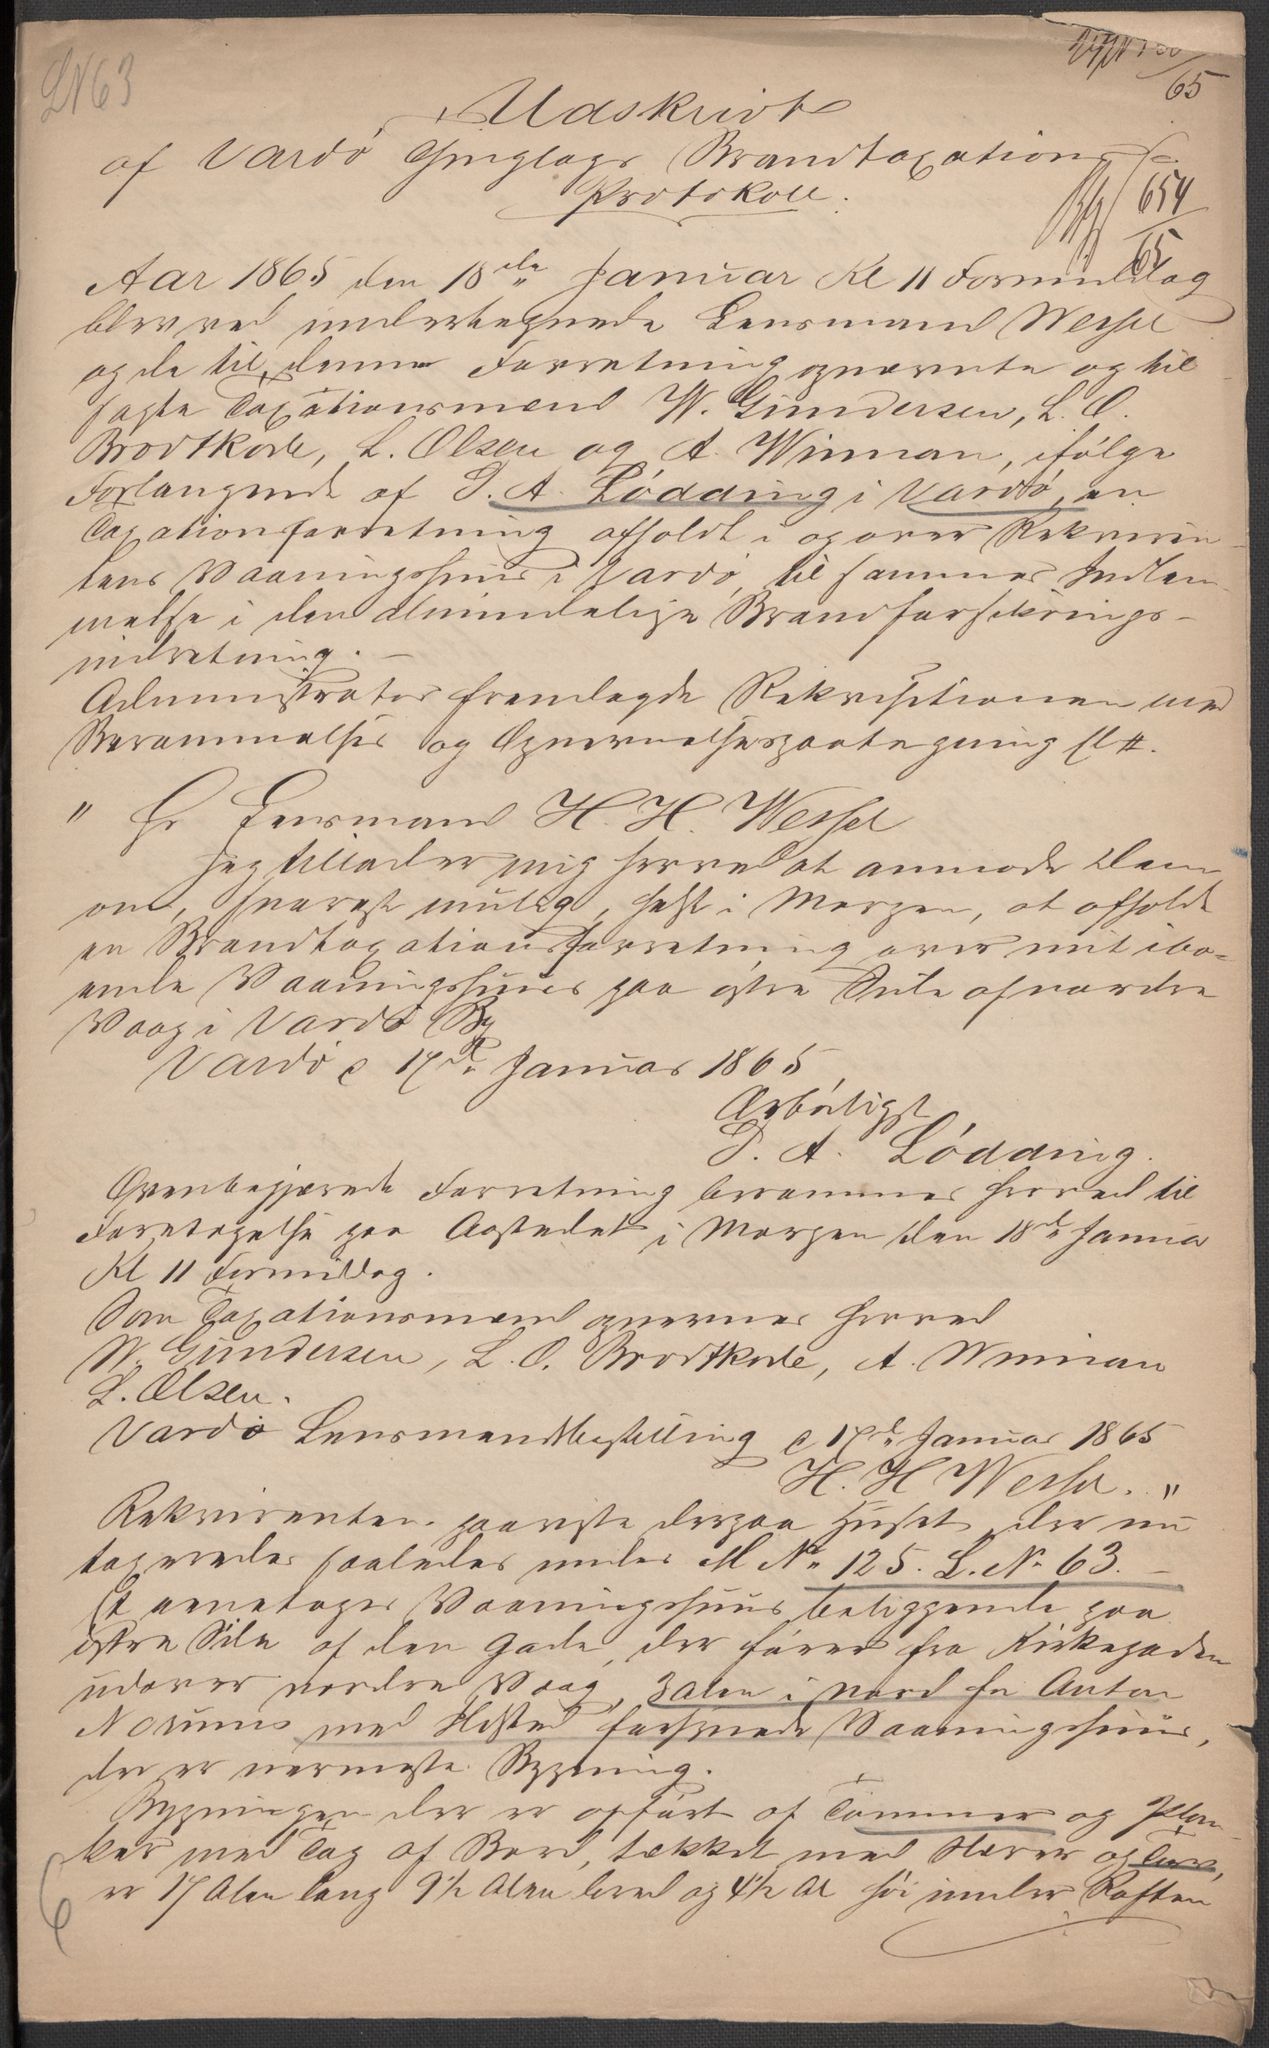 LN 63
65
Udskrivt
af Vardø Thinglags Brandtaxations
Protokoll.
654
65
Aar 1865 den 18de Januar Kl 11 Formiddag
blev ved undertegnede Lensmand Wessel
og de til denne Forretning opnævnte og til
sagte Taxationsmænd W. Gundersen, L. O.
Brodtkorb, L. Olsen og A. Winman, ifølge
Forlangende af P. A. Lødding i Vardø, en
Taxationsforretning afholdt i og over Rekviren
tens Vaaningshuus i Vardø til sammes Indlem
melse i den almindelige Brandforsikrings-
indretning. —
Administrator fremlagde Rekvisitionen med
Berammelses og Opnævnelsespaategning sl #.
" Hr Lensmand H. H. Wessel
Jeg tillader mig herved at anmode Dem
om, snarest mulig, helst i Morgen, at afholde
en Brandtaxationsforretning over mit ibo-
ende Vaaningshuus paa østre Side af nordre
Vaag i Vardø By
Vardø d 17de Januar 1865
Ærbødigst
P. A. Lødding.
Ovenbegjærede Forretning berammes herved til
Foretagelse paa Aastedet i Morgen den 18de Januar
Kl 11 Formiddag.
Som Taxationsmænd opnævnes herved
W. Gundersen, L. O. Brodtkorb, A. Winman
L. Olsen.
Vardø Lensmandbestilling d 17de Januar 1865
H. H Wessel. "
Rekvirenten paaviste derpaa Huset, der nu
taxeredes saaledes under M No 125. L. No 63. —
Et eenetages Vaaningshuus beliggende paa
østre Side af den Gade, der fører fra Kirkegaden
udover nordre Vaag, 3 Alen i Nord fra Anton
Norums med Ildsted forsynede Vaaningshuus,
der er nærmeste Bygning.
Bygningen der er opført af Tømmer og Plan
ker med Tag af Bord, tækket med Næver og Tørv,
er 17 Alen lang 9 1/2 Alen bred og 4 1/2 Al høi under Raften
6